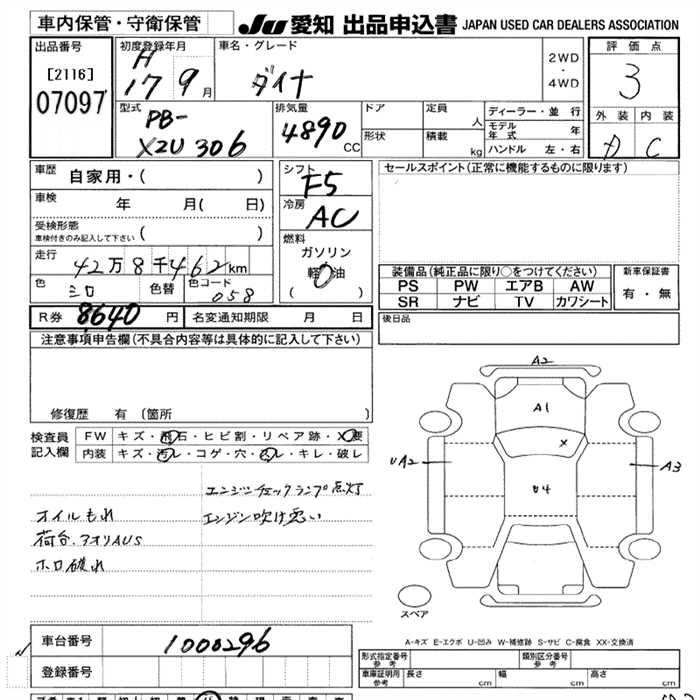 車内保管・守衛保管
JU 愛知 出品申込書 JAPAN USED CAR DEALERS ASSOCIATION
出品番号
[2116]
07097
初度登録年月
H
17 9月
車名・グレード
ダイナ
2WD
・
4WD
評価点
3
外装 内装
D C
型式
PB-
XZU306
排気量
4890 CC
ドア
形状
定員
人
積載
kg
ディーラー・並行
モデル年式 年
ハンドル 左・右
車歴 自家用・( )
車検 年 月( 日)
受検形態
車検付きのみ記入して下さい ( )
走行 42万8千462km
色 シロ 色替 色コード 058
シフト
F5
冷房
AC
燃料
ガソリン
軽油
( )
セールスポイント(正常に機能するものに限ります)
装備品(純正品に限り○をつけてください)
PS PW エアB AW
SR ナビ TV カワシート
新車保証書
有・無
R券 8640 円 名変通知期限 月 日
後日品
注意事項申告欄(不具合内容等は具体的に記入して下さい)
修復歴 有 (箇所 )
検査員
記入欄
FW キズ・飛石・ヒビ割・リペア跡・X要
内装 キズ・汚レ・コゲ・穴・スレ・キレ・破レ
エンジンチェックランプ点灯
オイルもれ エンジン吹け悪い
荷台、アオリAUS
ホロ破れ
A2
A1
X
UA2
A3
U4
スペア
A-キズ E-エクボ U-凹み W-補修跡 S-サビ C-腐食 XX-交換済
車台番号 1000296
登録番号
形式指定番号
参考
類別区分番号
参考
車庫証明用
参考
長さ cm 幅 cm 高さ cm